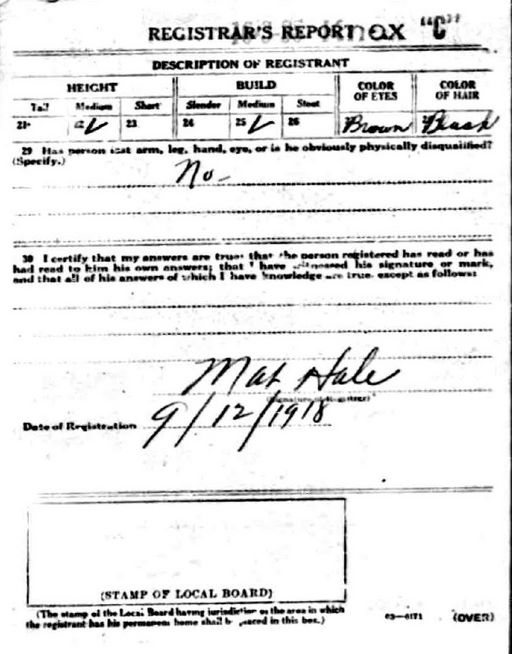 REGISTRAR'S REPORT
"C"
DESCRIPTION OF REGISTRANT
HEIGHT BUILD COLOR OF EYES COLOR OF HAIR
Tall Medium Short Slender Medium Stout
21 22 ✓ 23 24 25 ✓ 26 Brown Black
29 Has person lost arm, leg, hand, eye, or is he obviously physically disqualified?
(Specify.)
No-
30 I certify that my answers are true; that the person registered has read or has
had read to him his own answers; that I have witnessed his signature or mark,
and that all of his answers of which I have knowledge are true, except as follows:
Mat Hale
(Signature of Registrar)
Date of Registration 9/12/1918
(STAMP OF LOCAL BOARD)
(The stamp of the Local Board having jurisdiction of the area in which
the registrant has his permanent home shall be placed in this box.)
03—6171 (OVER)